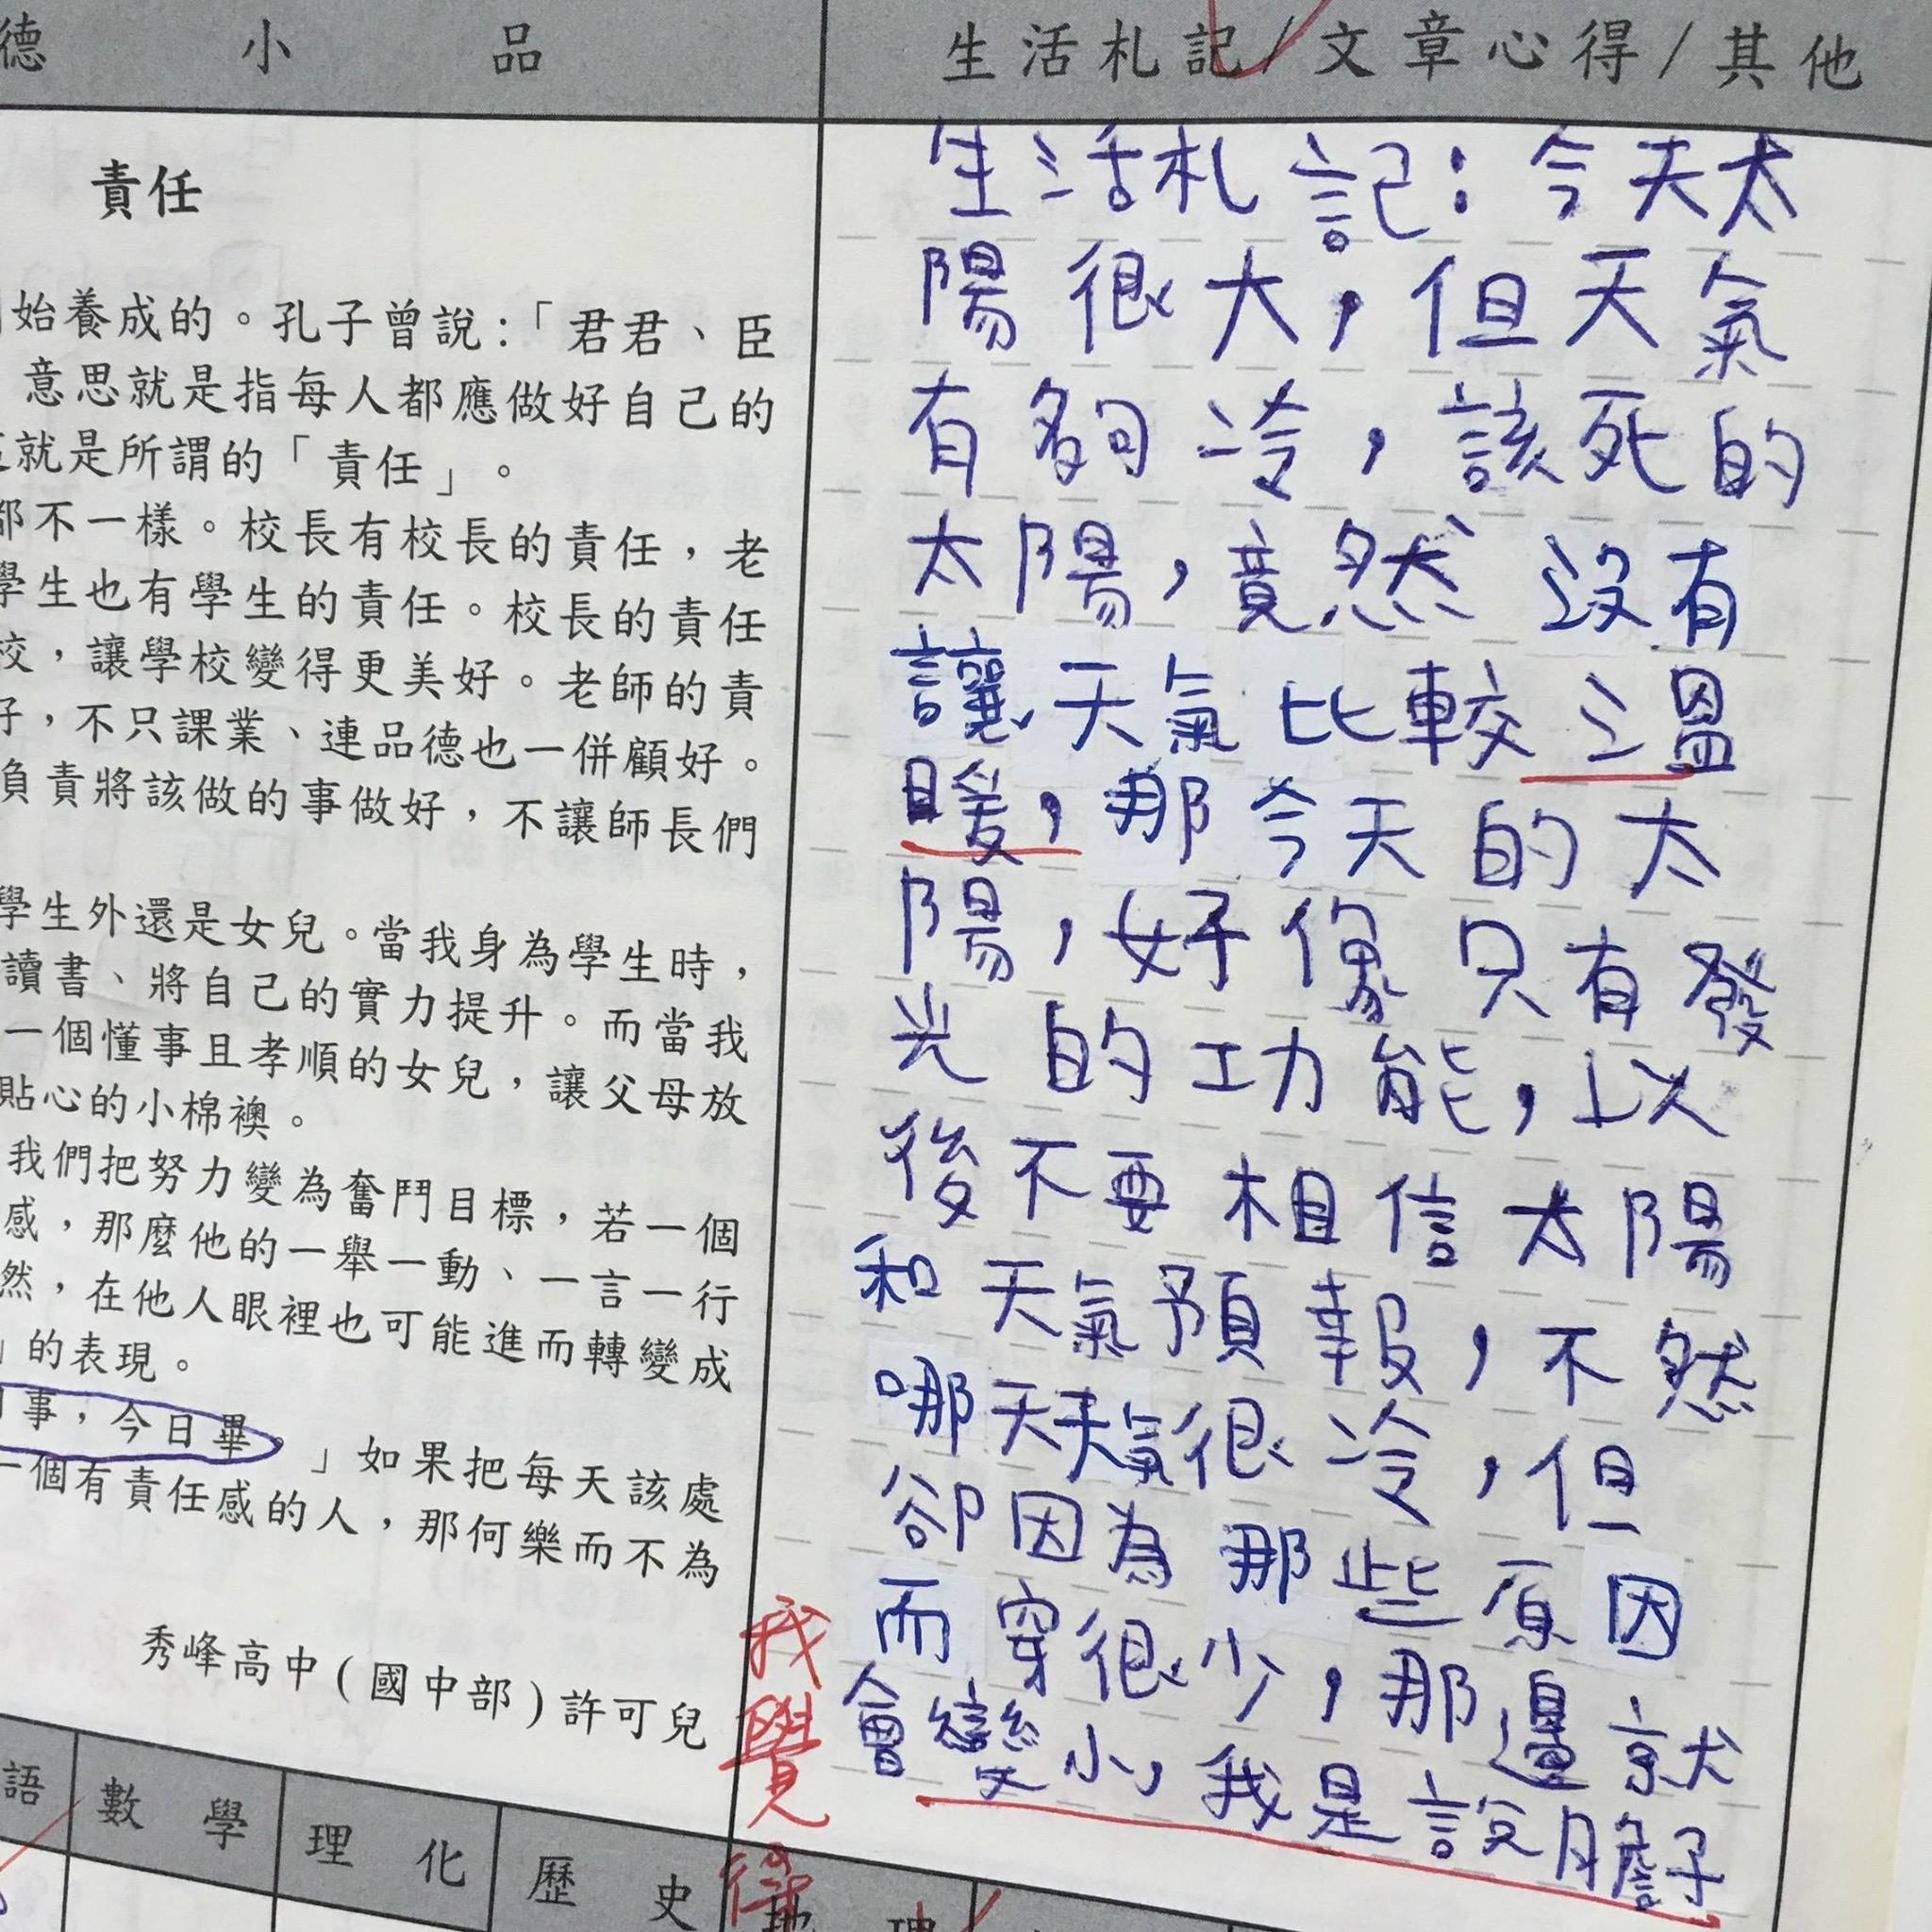 德小品
生活札記/文章心得/其他
責任
始養成的。孔子曾說:「君君、臣
意思就是指每人都應做好自己的
就是所謂的「責任」。
都不一樣。校長有校長的責任,老
學生也有學生的責任。校長的責任
校,讓學校變得更美好。老師的責
好,不只課業、連品德也一併顧好。
負責將該做的事做好,不讓師長們
學生外還是女兒。當我身為學生時,
讀書、將自己的實力提升。而當我
一個懂事且孝順的女兒,讓父母放
貼心的小棉襖。
我們把努力變為奮鬥目標,若一個
感,那麼他的一舉一動、一言一行
然,在他人眼裡也可能進而轉變成
」的表現。
事,今日畢。」如果把每天該處
一個有責任感的人,那何樂而不為
秀峰高中(國中部)許可兒
生活札記:今天太
陽很大,但天氣
有夠冷,該死的
太陽,竟然沒有
讓天氣比較溫
暖,那今天的太
陽,好像只有發
光的功能,以
後不要相信太陽
和天氣預報,不然
哪天天氣很冷,但
卻因為那些原因
而穿很少,那邊就
會變小,我是說膽子
我覺得
語
數學
理化
歷史
地理